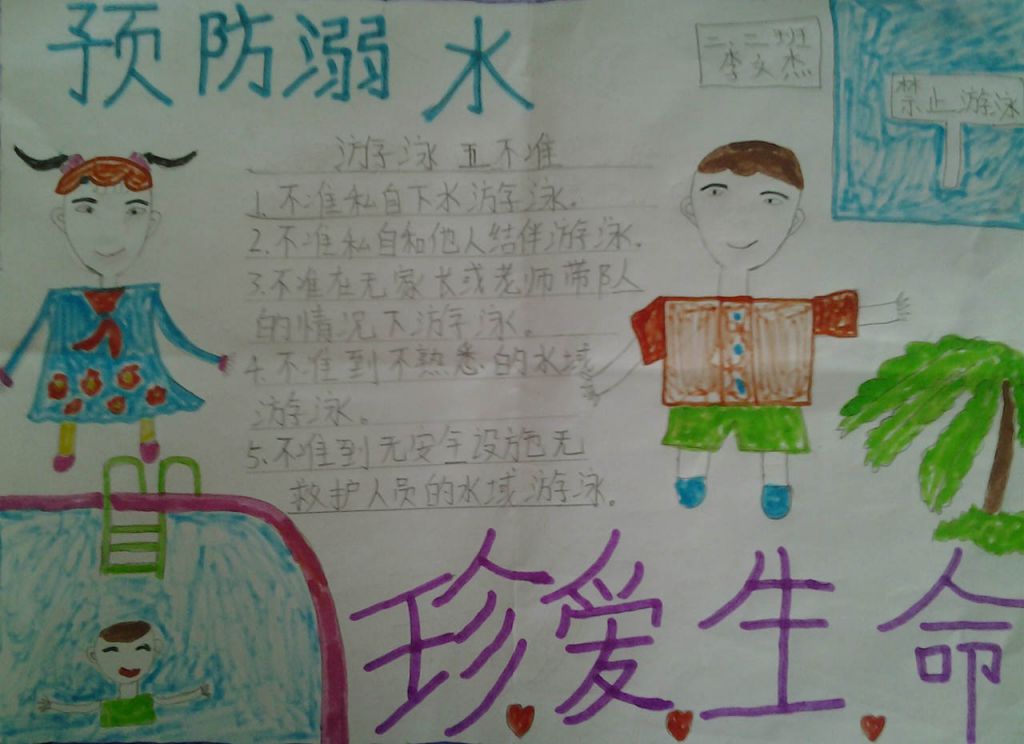 预防溺水
二、二班
李文杰
禁止游泳
游泳五不准
1.不准私自下水游泳。
2.不准私自和他人结伴游泳.
3.不准在无家长或老师带队
的情况下游泳。
4.不准到不熟悉的水域
游泳。
5.不准到无安全设施无
救护人员的水域游泳。
珍爱生命